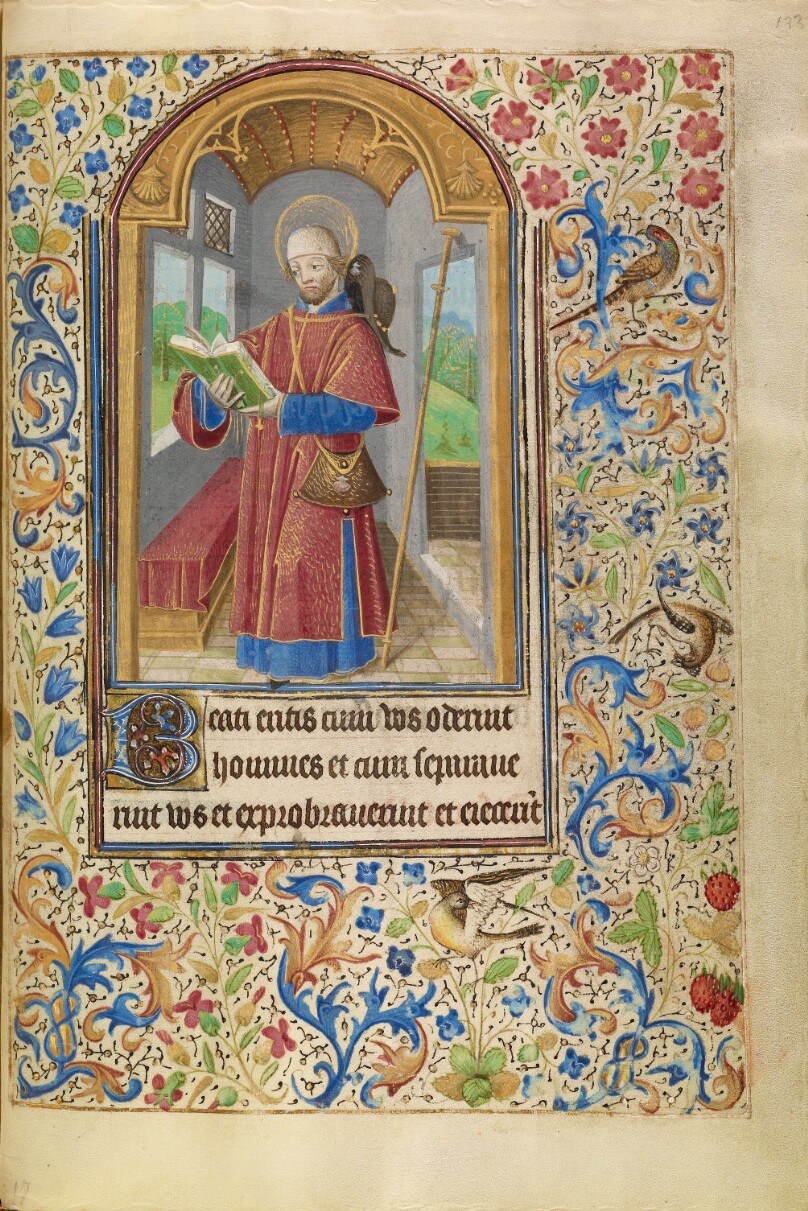 133
Beati eritis cum vos oderint
homines et cum separaue
rint vos et exprobrauerint et eiecerīt
17